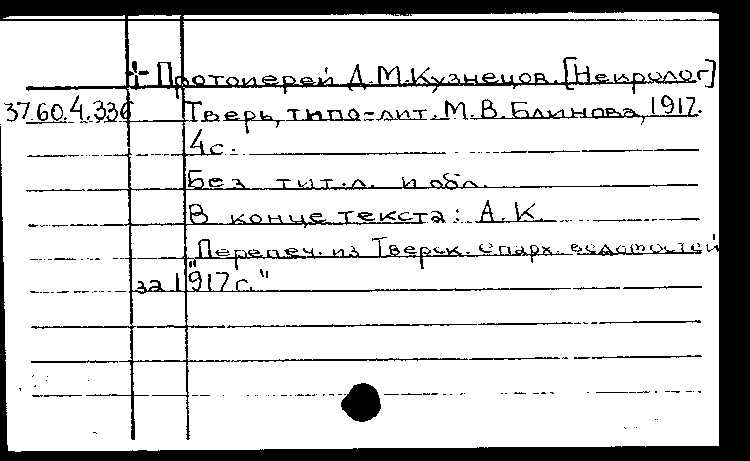 † Протоиерей Д.М.Кузнецов. [Некролог]
37.60.4.336 Тверь, типо-лит. М.В. Блинова, 1917.
4с.
Без тит.л. и обл.
В конце текста: А.К.
"Перепеч. из Тверск. епарх. ведомостей
за 1917г."